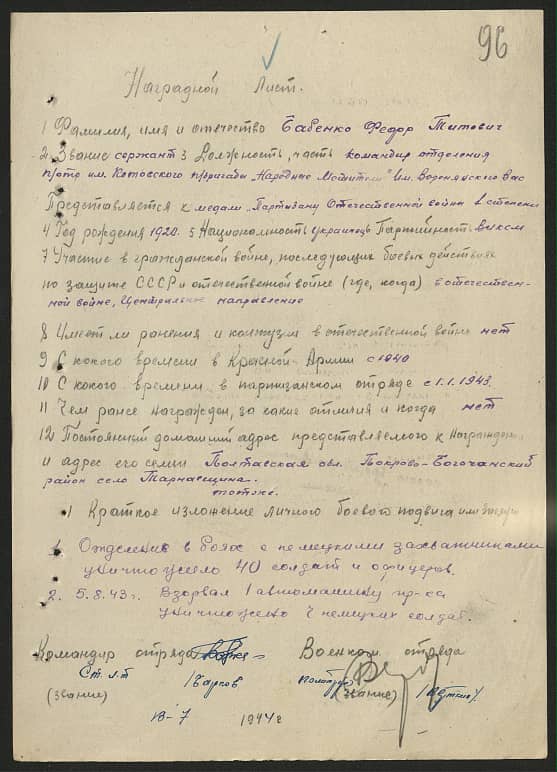 96
Наградной Лист.
1 Фамилия, имя и отечество Бабенко Федор Титович
2 Звание сержант 3 Должность, часть командир отделения
п/отр им. Котовского п/бригады "Народные Мстители" им. Воронянского Вас
Представляется к медали "Партизану Отечественной войны 1 степени
4 Год рождения 1920. 5 Национальность украинец Партийность ВЛКСМ
7 Участие в гражданской войне, последующих боевых действиях
по защите СССР и отечественной войне (где, когда) в отечествен-
ной войне, Центральное направление
8 Имеет ли ранения и контузии в отечественной войне нет
9 С какого времени в Красной Армии с 1940
10 С какого времени в партизанском отряде с 1.1.1943.
11 Чем ранее награжден, за какие отличия и когда нет
12 Постоянный домашний адрес представляемого к награжден
и адрес его семьи Полтавская обл. Покрово-Богочанский
район село Тарнавщина.
тоже.
1 Краткое изложение личного боевого подвига или
1. Отделение в боях с немецкими захватчиками
уничтожело 40 солдат и офицеров.
2. 5.8.43г. Взорвал 1 автомашину пр-ка
уничтожено 4 немецких солдат.
Командир отряда Военком отряда
Ст. л-т
(звание) (звание)
18-7 1944г